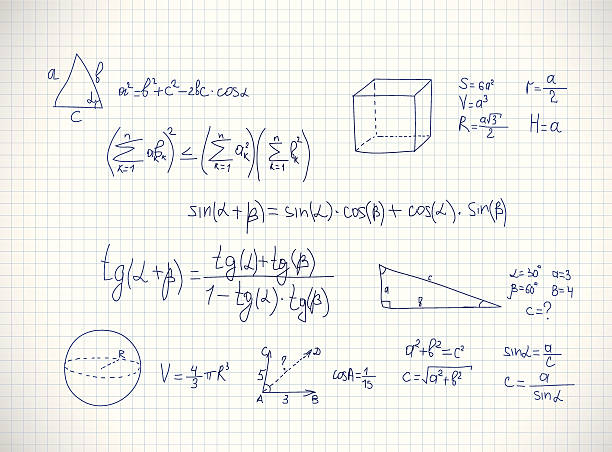 a b α c
a²=b²+c²-2bc·cosα
S=6a²
V=a³
R=a√3/2
r=a/2
H=a
(∑ₖ₌₁ⁿ aₖbₖ)² ≤ (∑ₖ₌₁ⁿ aₖ²)(∑ₖ₌₁ⁿ bₖ²)
sin(α+β)=sin(α)·cos(β)+cos(α)·sin(β)
tg(α+β)=(tg(α)+tg(β))/(1-tg(α)·tg(β))
a c b
α=30° a=3
β=60° b=4
c=?
R
V=4/3πR³
C D ? 5 A 3 B
cosA=1/15
a²+b²=c²
c=√a²+b²
sinα=a/c
c=a/sinα